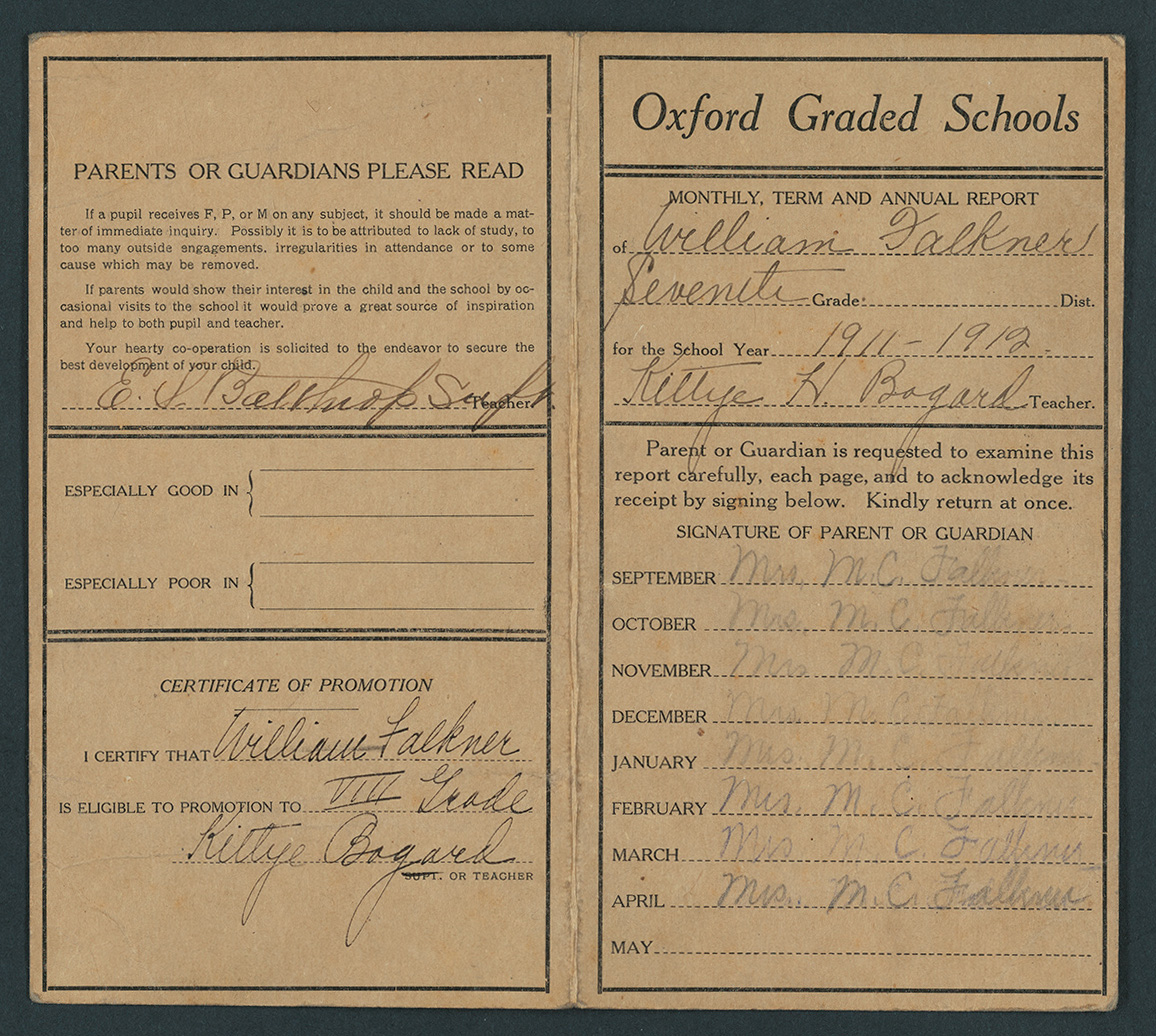 PARENTS OR GUARDIANS PLEASE READ
If a pupil receives F, P, or M on any subject, it should be made a mat-
ter of immediate inquiry. Possibly it is to be attributed to lack of study, to
too many outside engagements. irregularities in attendance or to some
cause which may be removed.
If parents would show their interest in the child and the school by oc-
casional visits to the school it would prove a great source of inspiration
and help to both pupil and teacher.
Your hearty co-operation is solicited to the endeavor to secure the
best development of your child.
E. Supt. Teacher.
ESPECIALLY GOOD IN
ESPECIALLY POOR IN
CERTIFICATE OF PROMOTION
I CERTIFY THAT William Falkner
IS ELIGIBLE TO PROMOTION TO VIII Grade
Kittye Bogard
SUPT. OR TEACHER
Oxford Graded Schools
MONTHLY, TERM AND ANNUAL REPORT
of William Falkner
Grade Dist.
for the School Year 1911-1912.
Kittye H. Bogard Teacher.
Parent or Guardian is requested to examine this
report carefully, each page, and to acknowledge its
receipt by signing below. Kindly return at once.
SIGNATURE OF PARENT OR GUARDIAN
SEPTEMBER Mrs. M.C. Falkner
OCTOBER Mrs. M.C. Falkner
NOVEMBER Mrs M.C. Falkner
DECEMBER Mrs. M.C. Falkner
JANUARY Mrs. M.C. Falkner
FEBRUARY Mrs. M.C. Falkner
MARCH Mrs M.C. Falkner
APRIL Mrs. M.C. Falkner
MAY